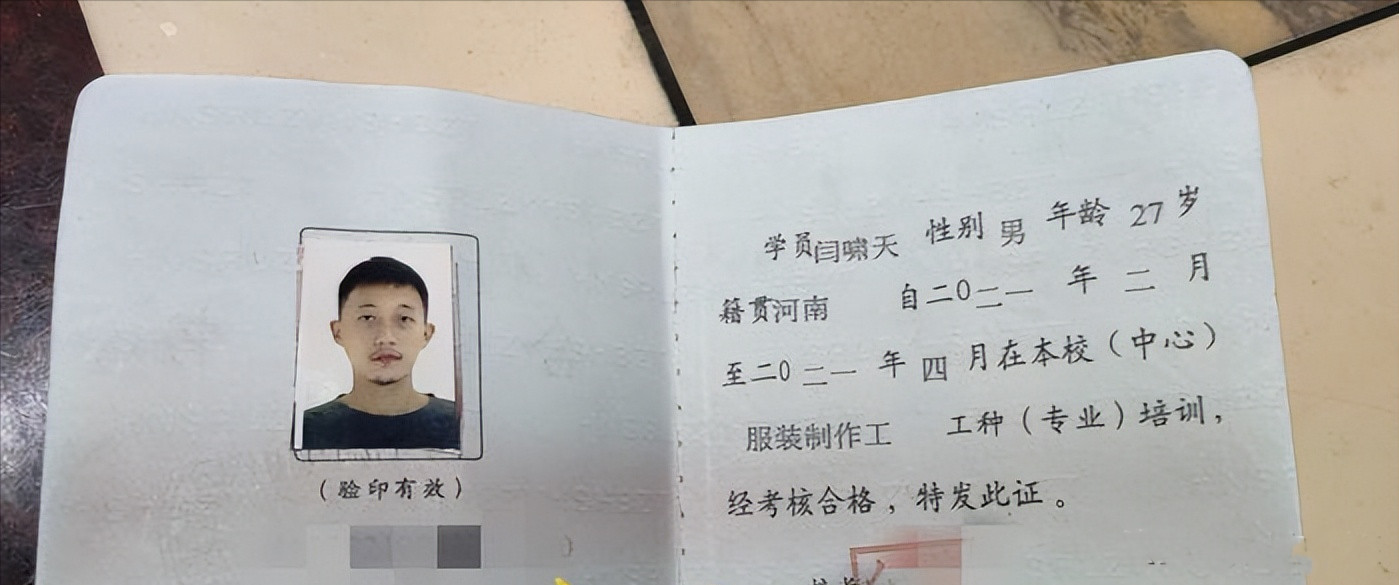 （验印有效）
学员闫啸天 性别 男 年龄 27 岁
籍贯河南 自二0二一 年 二 月
至二0二一 年 四 月在本校（中心）
服装制作工 工种（专业）培训，
经考核合格，特发此证。